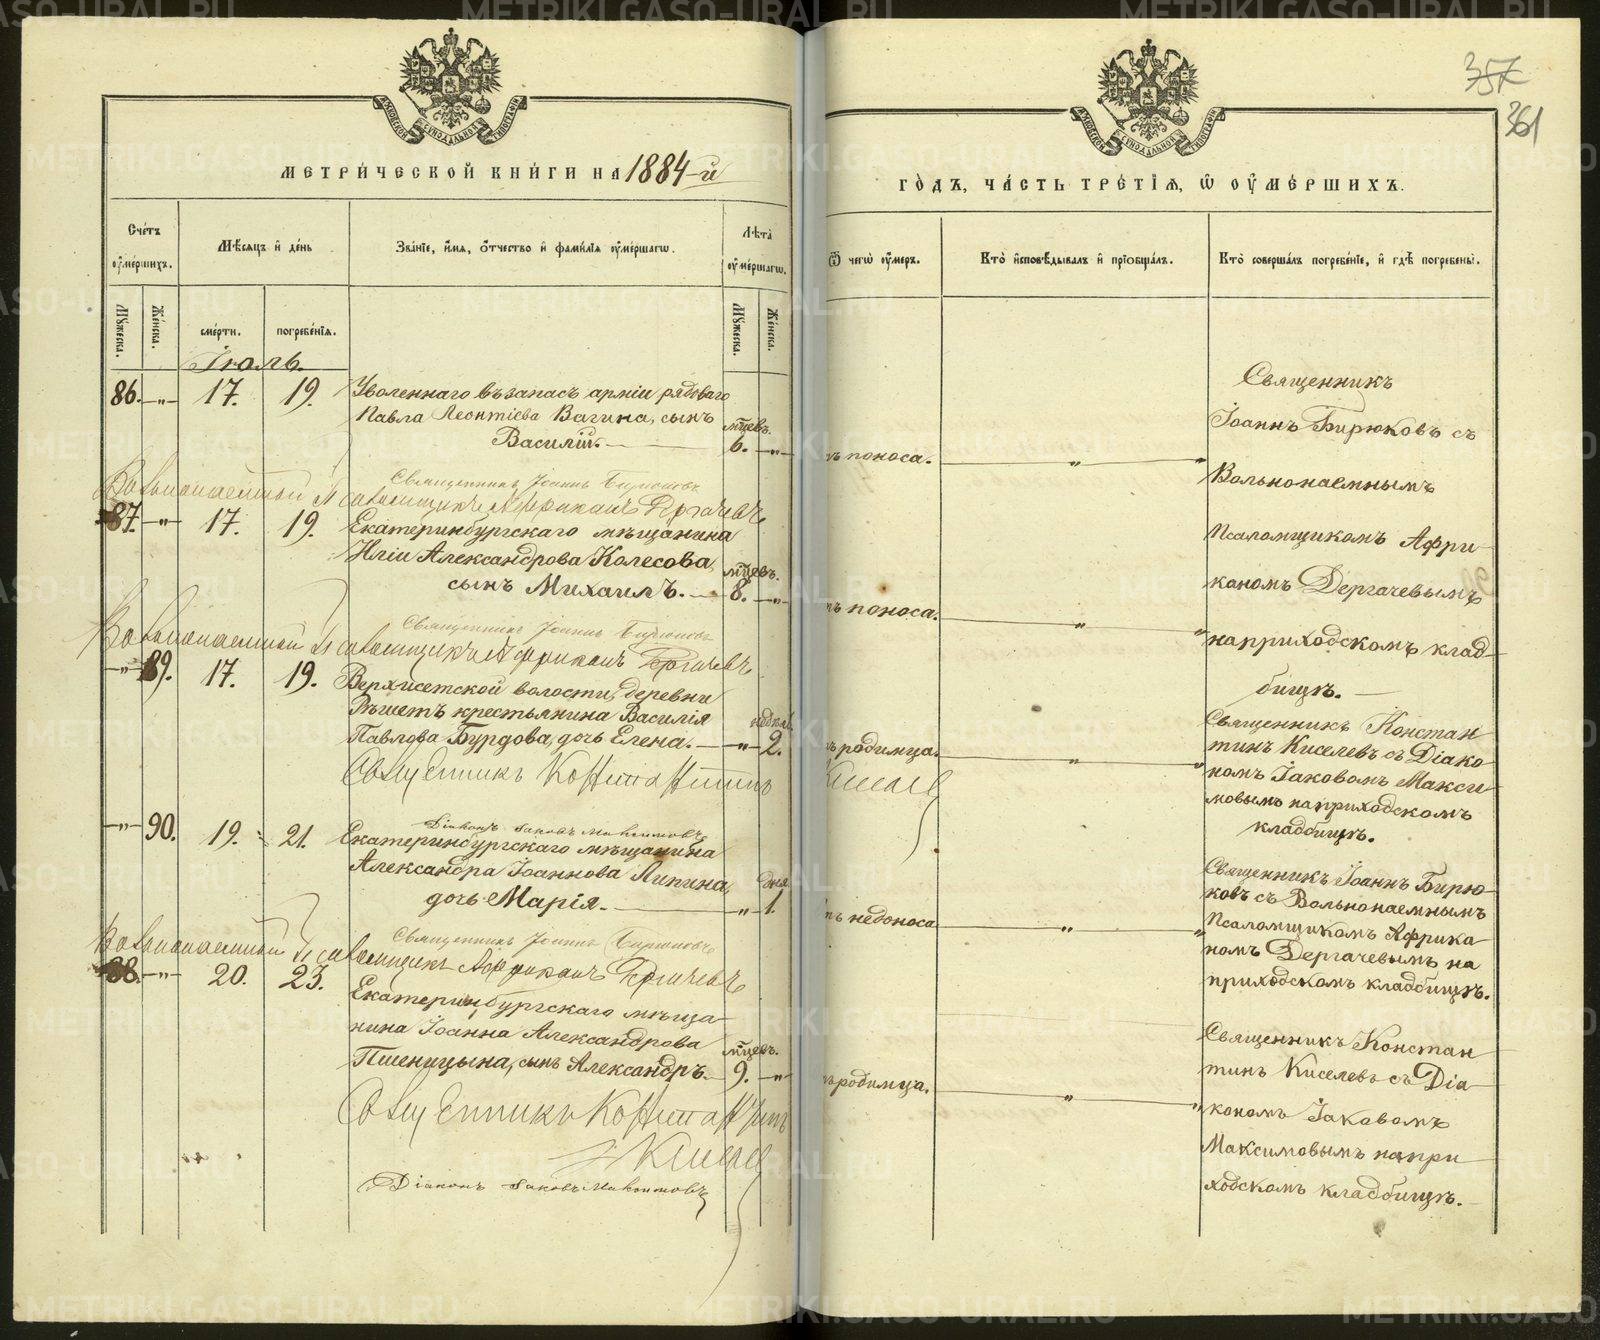 357
361
МЕТРИЧЕСКОЙ КНИГИ НА 1884-й
ГОДЪ, ЧАСТЬ ТРЕТІЯ, Ѿ ОУМЕРШИХЪ.
Счетъ оумершихъ.
Мѣсяцъ и день
Званіе, имя, отчество и фамилія оумершагѡ.
Лѣта оумершагѡ.
Ѿ чегѡ оумеръ.
Кто исповѣдывалъ и пріобщалъ.
Кто совершалъ погребеніе, и гдѣ погребены.
Мужеска.
Женска.
смерти.
погребенія.
Мужеска.
Женска.
Іюль.
86. „ 17. 19. Уволеннаго въ запасъ арміи рядоваго
Павла Леонтіева Вагина, сынъ мѣцевъ.
Василій. 6. „
поноса. „ „
Священникъ
Іоаннъ Бирюковъ съ
Вольнонаемнымъ
Псаломщикомъ Афри-
каномъ Дергачевымъ
на приходскомъ клад-
бищѣ.
Священникъ Іоаннъ Бирюковъ
Вольнонаемный Псаломщикъ Африканъ Дергачевъ
87. „ 17. 19. Екатеринбургскаго мѣщанина
Иліи Александрова Колесова, мѣцевъ.
сынъ Михаилъ. 8. „
поноса. „ „
Священникъ Іоаннъ Бирюковъ
Вольнонаемный Псаломщикъ Африканъ Дергачевъ
„ 89. 17. 19. Верхисетской волости, деревни
Рѣшетъ крестьянина Василія недѣль
Павлова Бурдова, дочь Елена. „ 2.
родимца. „ „
Священникъ Констан
тинъ Киселевъ съ Діако
номъ Іаковомъ Макси
мовымъ на приходскомъ
кладбищѣ.
Священникъ Константинъ Киселев
Діаконъ Іаковъ Максимовъ
„ 90. 19. 21. Екатеринбургскаго мѣщанина
Александра Іоаннова Липина, дня
дочь Марія. „ 1.
недоноса „ „
Священникъ Іоаннъ Бирю-
ковъ съ Вольнонаемнымъ
Псаломщикомъ Африка-
номъ Дергачевымъ на
приходскомъ кладбищѣ.
Священникъ Іоаннъ Бирюковъ
Вольнонаемный Псаломщикъ Африканъ Дергачевъ
88. „ 20. 23.
Екатеринбургскаго мѣща-
нина Іоанна Александрова мѣцевъ.
Пшеницына, сынъ Александръ. 9. „
родимца. „ „
Священникъ Констан
тинъ Киселевъ съ Діа-
кономъ Іаковомъ
Максимовымъ на при-
ходскомъ кладбищѣ.
Священникъ Константинъ
Киселев
Діаконъ Іаковъ Максимовъ
METRIKI.GASO-URAL.RU